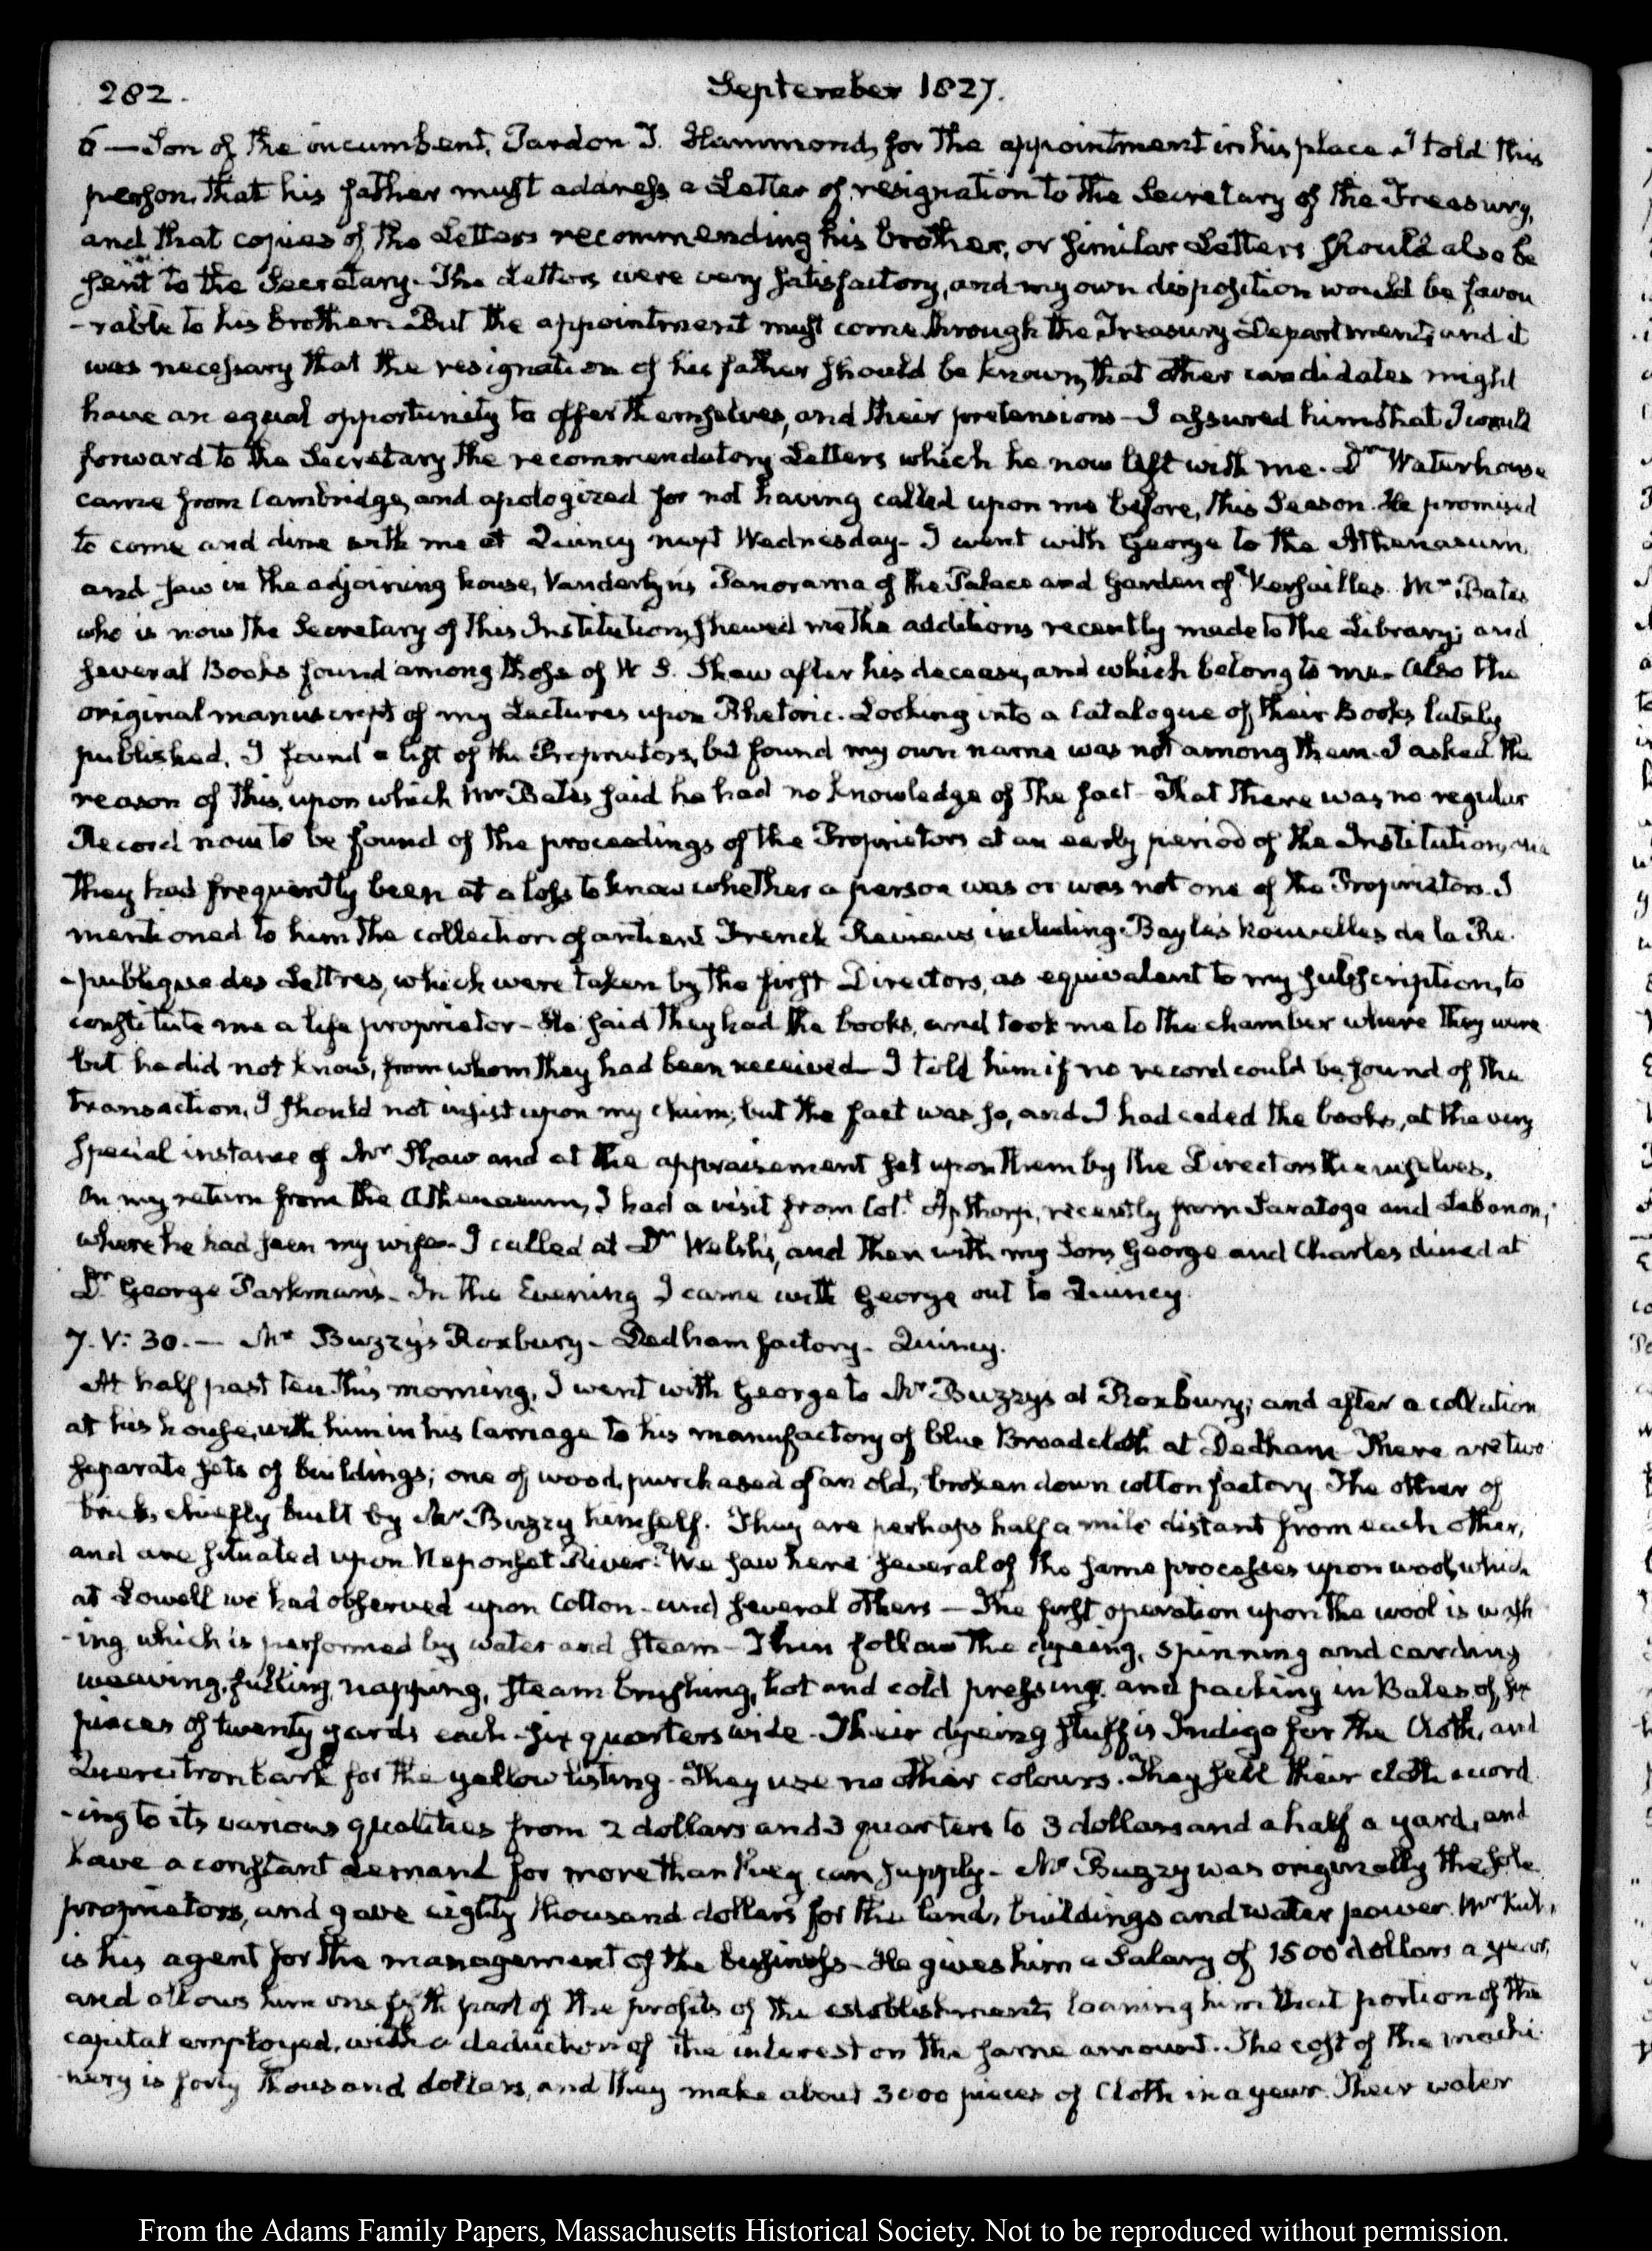 282.
September 1827.
6 — Son of the incumbent, Pardon T. Hammond, for the appointment in his place. I told this
person, that his father must address a Letter of resignation to the Secretary of the Treasury,
and that copies of the Letters recommending his brother, or similar Letters should also be
sent to the Secretary. The Letters were very satisfactory, and my own disposition would be favou
-rable to his brother. But the appointment must come through the Treasury Department, and it
was necessary that the resignation of his father should be known, that other candidates might
have an equal opportunity to offer themselves, and their pretensions — I assured him that I would
forward to the Secretary the recommendatory Letters which he now left with me. Dr Waterhouse
came from Cambridge, and apologized for not having called upon me before, this Season. He promised
to come and dine with me at Quincy next Wednesday. I went with George to the Athenaeum,
and saw in the adjoining house, Vanderlyn's Panorama of the Palace and Garden of Versailles. Mr Bates
who is now the Secretary of this Institution, shewed me the additions recently made to the Library; and
several Books found among those of W. S. Shaw after his decease, and which belong to me. Also the
original manuscript of my Lectures upon Rhetoric. Looking into a Catalogue of their Books lately
published, I found a list of the Proprietors, but found my own name was not among them. I asked the
reason of this, upon which Mr Bates said he had no knowledge of the fact. That there was no regular
Record now to be found of the proceedings of the Proprietors at an early period of the Institution, and
they had frequently been at a loss to know whether a person was or was not one of the Proprietors. I
mentioned to him the collection of antient French Reviews including Bayle's Nouvelles de la Re
-publique des Lettres, which were taken by the first Directors, as equivalent to my subscription, to
constitute me a life proprietor - He said they had the books, and took me to the chamber where they were
but he did not know, from whom they had been received — I told him if no record could be found of the
transaction, I should not insist upon my claim; but the fact was so, and I had ceded the books, at the very
special instance of Mr Shaw and at the appraisement set upon them by the Directors themselves.
On my return from the Athenaeum, I had a visit from Colt. Apthorp, recently from Saratoga and Lebanon,
where he had seen my wife. I called at Dr Welsh's, and then with my Sons George and Charles dined at
Dr George Parkman's. In the Evening I came with George out to Quincy.
7. V: 30. — Mr Buzzy's Roxbury - Dedham factory - Quincy.
At half past ten this morning, I went with George to Mr Buzzy's at Roxbury; and after a collation
at his house, with him in his Carriage to his manufactory of blue Broadcloth at Dedham. There are two
separate sets of buildings; one of wood, purchased of an old, broken down cotton factory. The other of
brick, chiefly built by Mr Buzzy himself. They are perhaps half a mile distant from each other,
and are situated upon Neponset River. We saw here several of the same processes upon wool, which
at Lowell we had observed upon Cotton - and several others — The first operation upon the wool is wash
-ing, which is performed by water and steam - Then follow the dyeing, spinning and carding
weaving, fulling, napping, steam brushing, hot and cold pressing, and packing in Bales of six
pieces of twenty yards each - six quarters wide. Their dyeing stuff is Indigo for the Cloth, and
Quercitron bark for the yellow listing - They use no other colours. They sell their cloth accord
-ing to its various qualities from 2 dollars and 3 quarters to 3 dollars and a half a yard, and
have a constant demand for more than they can supply. Mr Buzzy was originally the sole
proprietors, and gave eighty thousand dollars for the land, buildings and water power. Mr
is his agent for the management of the business - He gives him a Salary of 1500 dollars a year,
and allows him one fifth part of the profits of the establishment, loaning him that portion of the
capital employed, with a deduction of the interest on the same amount. The cost of the machi
-nery is forty thousand dollars, and they make about 3000 pieces of Cloth in a year. Their water
From the Adams Family Papers, Massachusetts Historical Society. Not to be reproduced without permission.